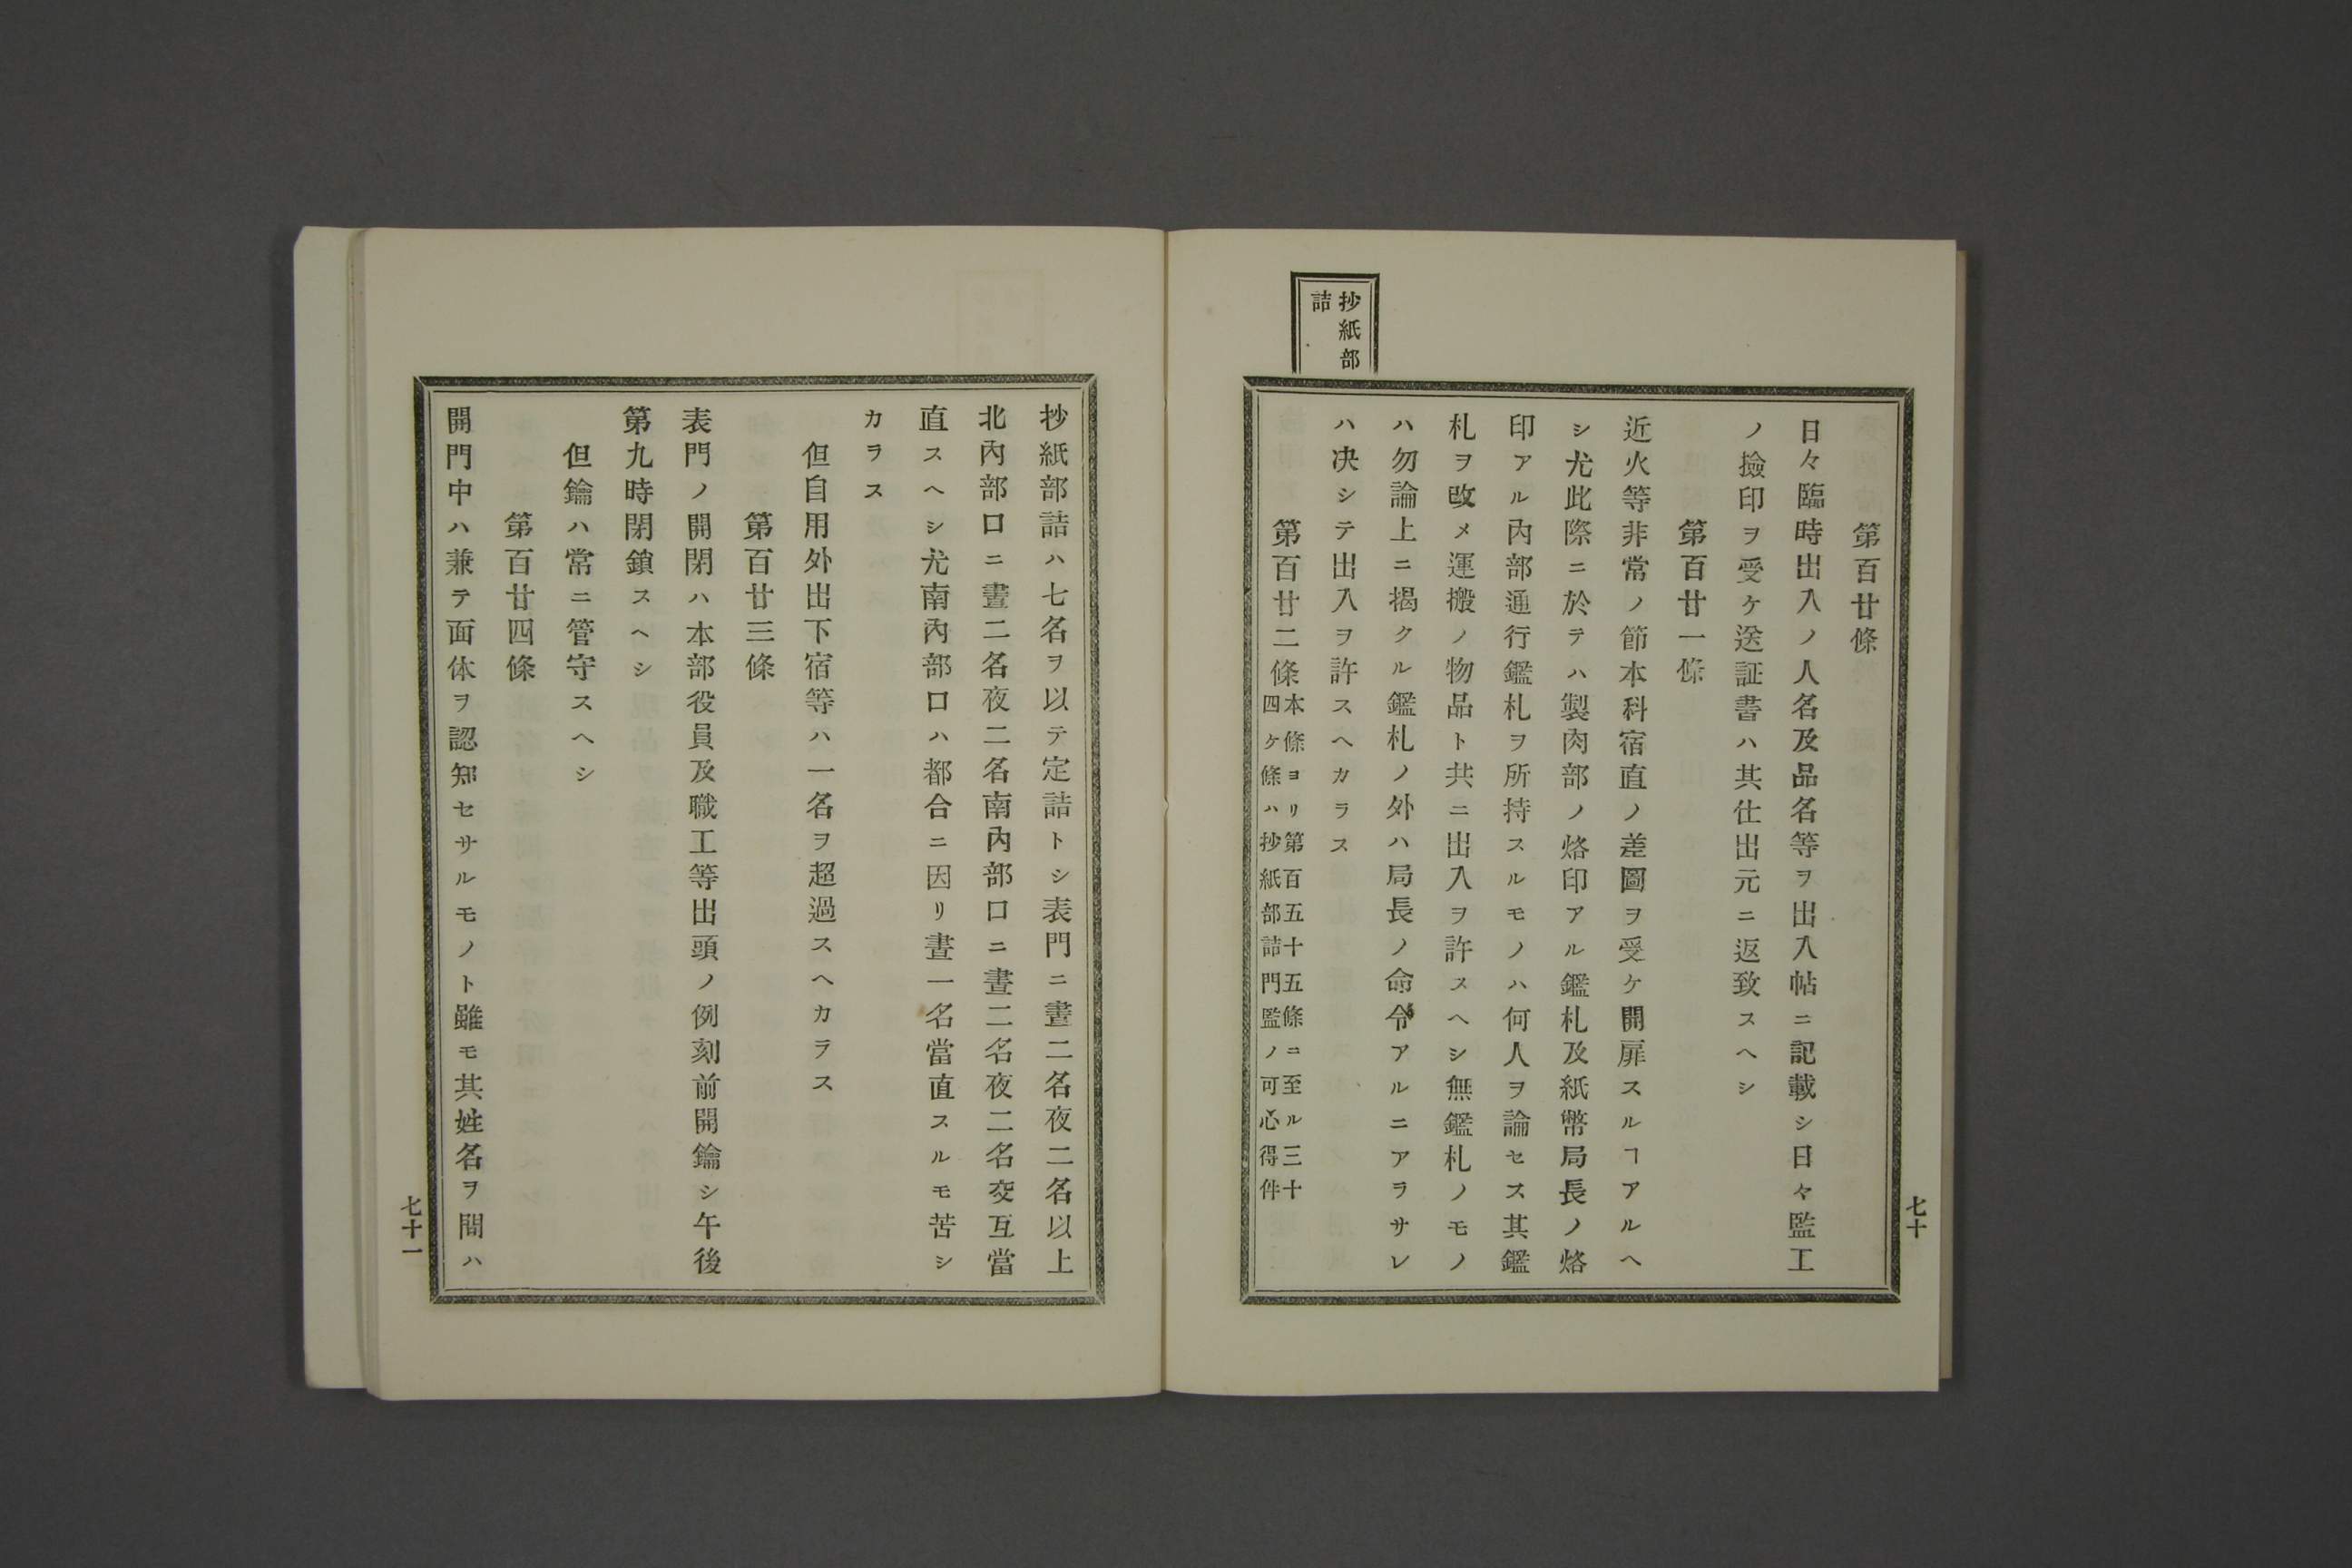 第百廿條
日々臨時出入ノ人名及品名等ヲ出入帖ニ記載シ日々監工
ノ撿印ヲ受ケ送証書ハ其仕出元ニ返致スヘシ
第百廿一條
近火等非常ノ節本科宿直ノ差圖ヲ受ケ開扉スルヿアルヘ
シ尤此際ニ於テハ製肉部ノ烙印アル鑑札及紙幣局長ノ烙
印アル內部通行鑑札ヲ所持スルモノハ何人ヲ論セス其鑑
札ヲ改メ運搬ノ物品ト共ニ出入ヲ許スヘシ無鑑札ノモノ
ハ勿論上ニ揭クル鑑札ノ外ハ局長ノ命令アルニアラサレ
ハ决シテ出入ヲ許スヘカラス
抄紙部
詰
第百廿二條
本條ヨリ第百五十五條ニ至ル三十
四ケ條ハ抄紙部詰門監ノ可心得件
七十
抄紙部詰ハ七名ヲ以テ定詰トシ表門ニ晝二名夜二名以上
北內部口ニ晝二名夜二名南內部口ニ晝二名夜二名交互當
直スヘシ尤南內部口ハ都合ニ因リ晝一名當直スルモ苦シ
カラス
但自用外出下宿等ハ一名ヲ超過スヘカラス
第百廿三條
表門ノ開閉ハ本部役員及職工等出頭ノ例刻前開鑰シ午後
第九時閉鎖スヘシ
但鑰ハ常ニ管守スヘシ
第百廿四條
開門中ハ兼テ面体ヲ認知セサルモノト雖モ其姓名ヲ問ハ
七十一